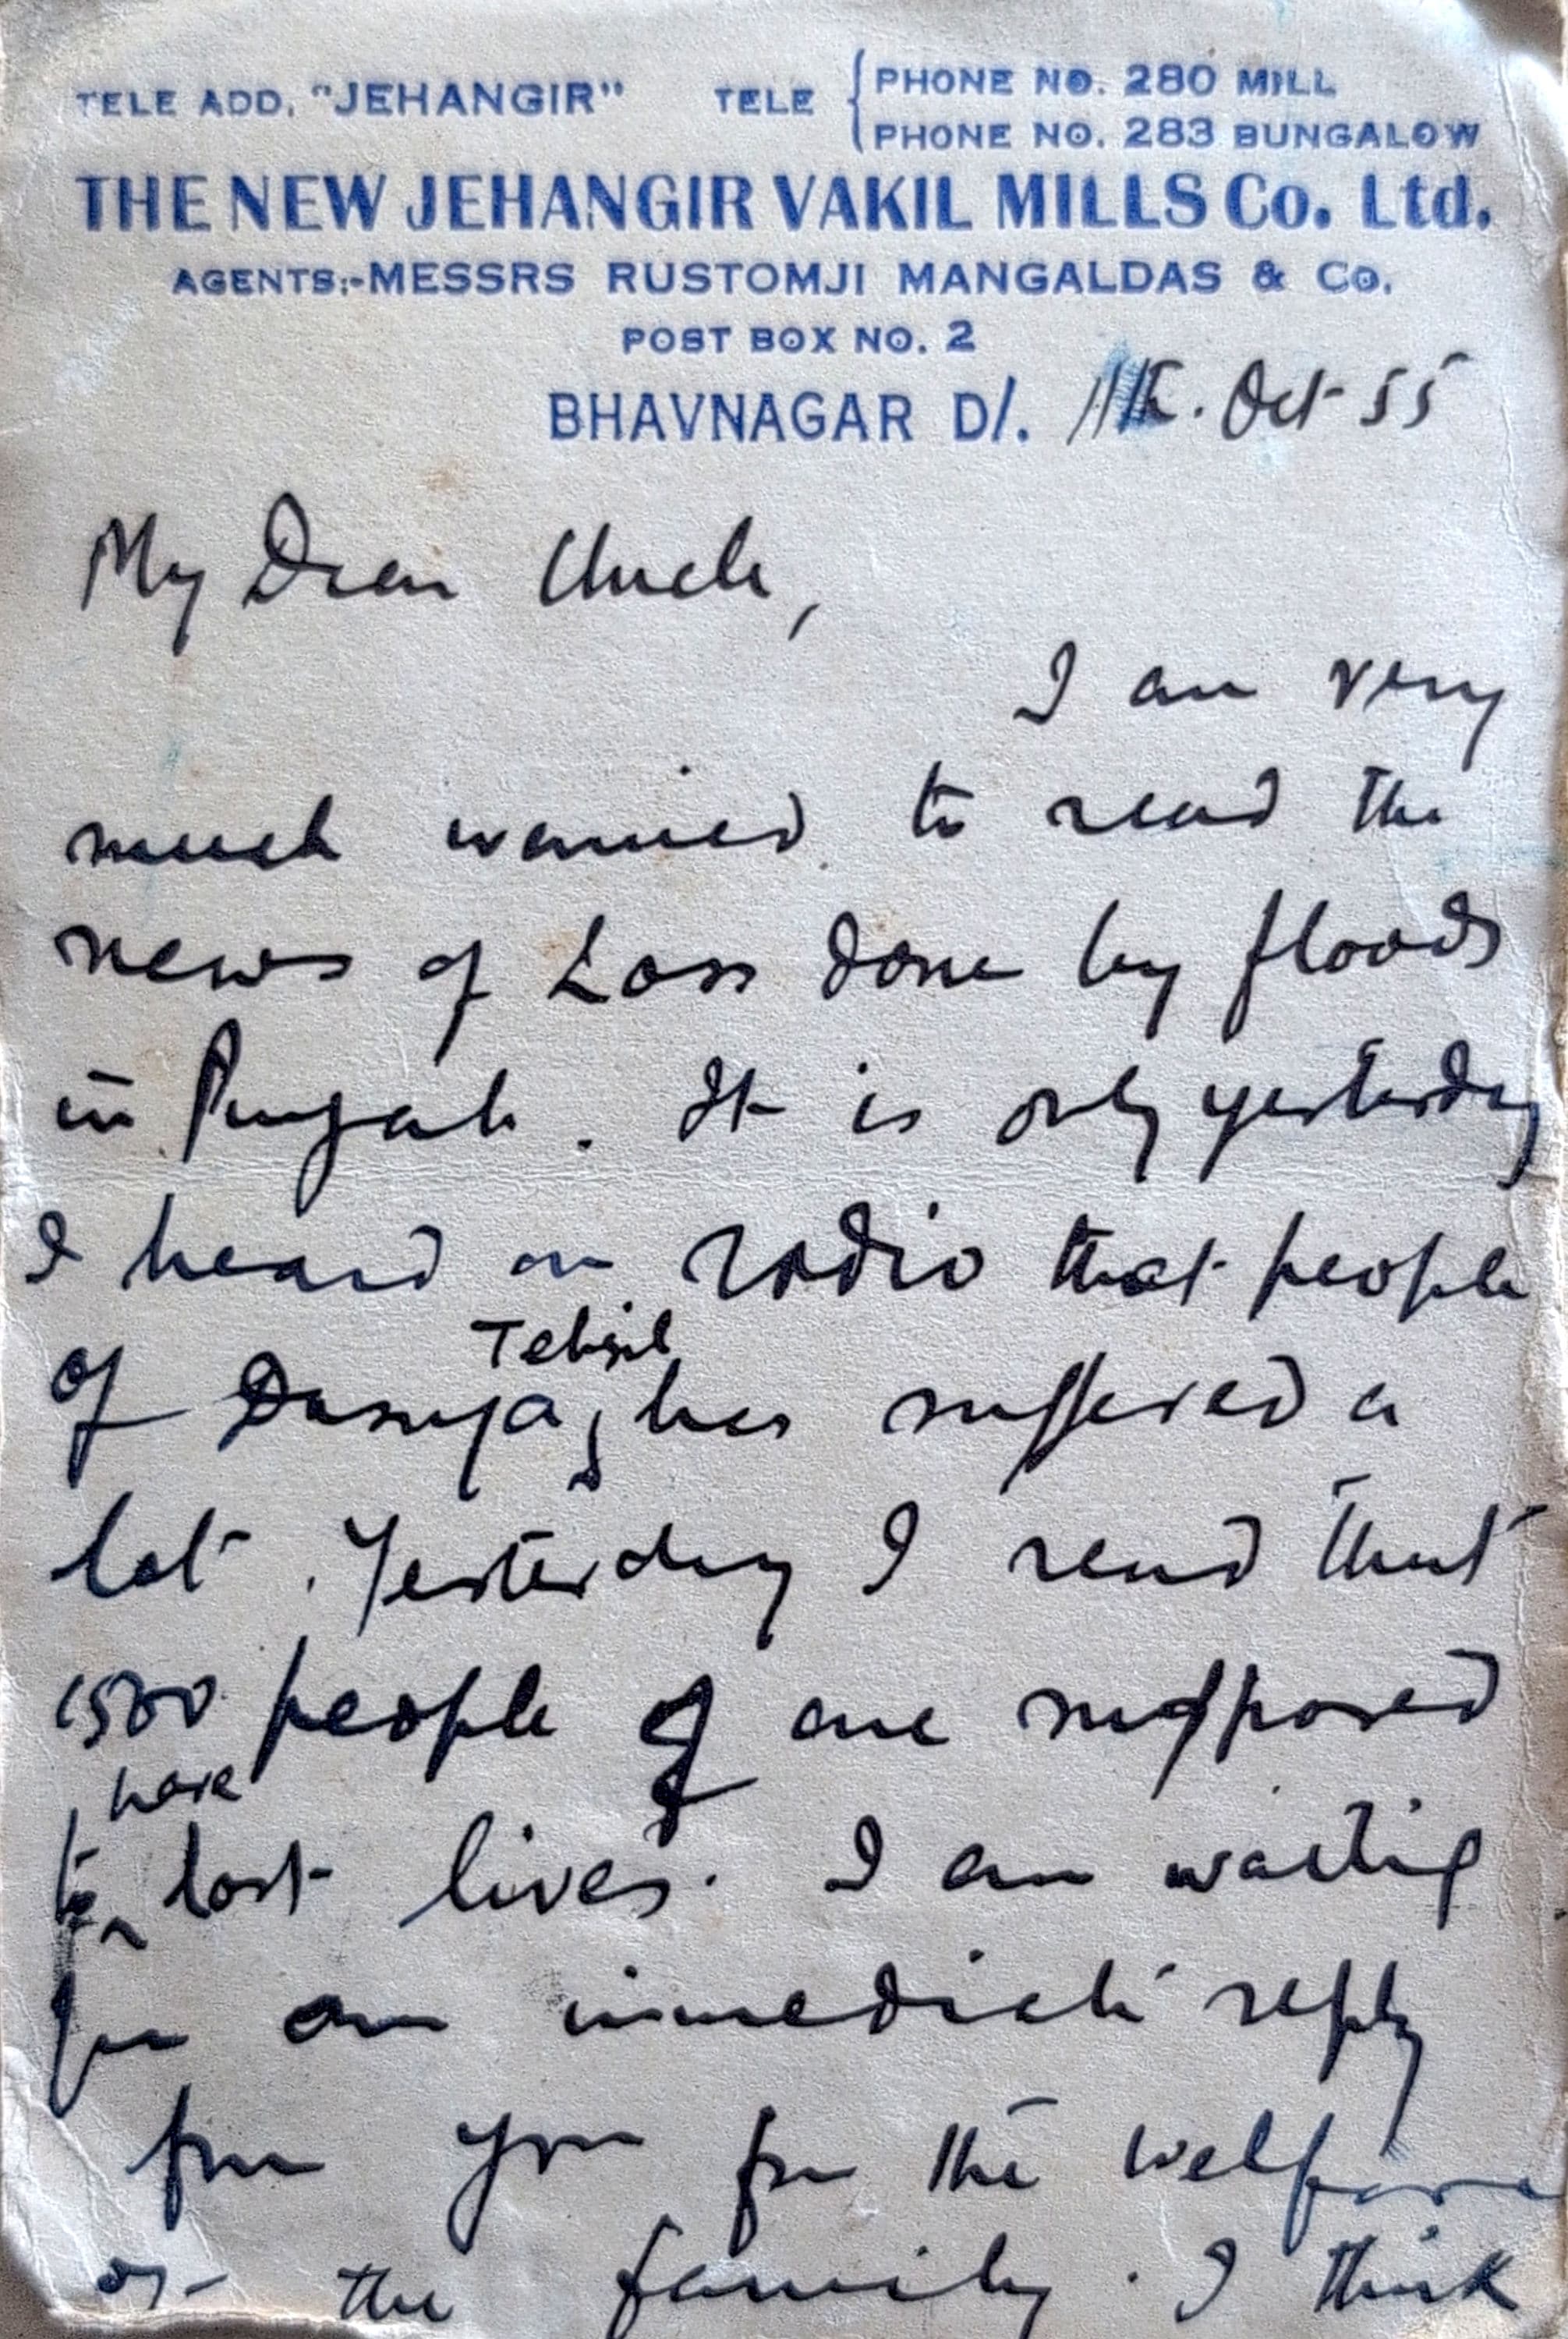 TELE ADD. "JEHANGIR" TELE PHONE NO. 280 MILL
PHONE NO. 283 BUNGALOW
THE NEW JEHANGIR VAKIL MILLS Co. Ltd.
AGENTS:-MESSRS RUSTOMJI MANGALDAS & Co.
POST BOX NO. 2
BHAVNAGAR D/. Oct 55
My Dear Uncle,
I am very
much worried to read the
news of Loss done by floods
in Punjab. It is only yesterday
I heard on radio that people
of Dasuya Tehsil has suffered a
lot. Yesterday I read that
1500 people of are supposed
to have lost lives. I am waiting
for an immediate reply
from you for the welfare
of the family. I think